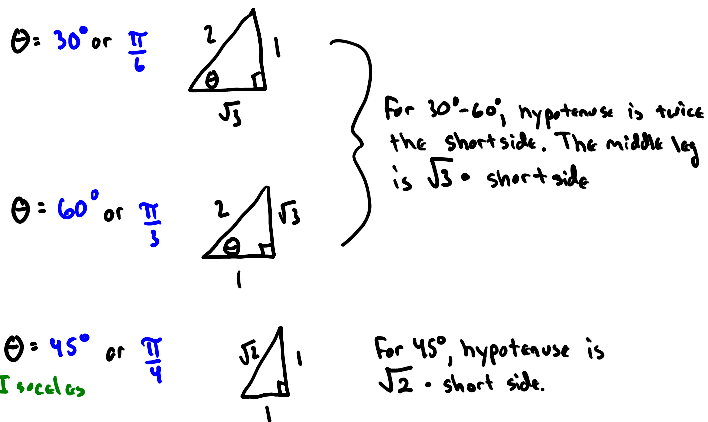 θ = 30° or π/6
2
1
θ
√3
For 30°-60°, hypotenuse is twice
the short side. The middle leg
is √3 • short side
θ = 60° or π/3
2
√3
θ
1
θ = 45° or π/4
Isoceles
√2
1
1
For 45°, hypotenuse is
√2 • short side.